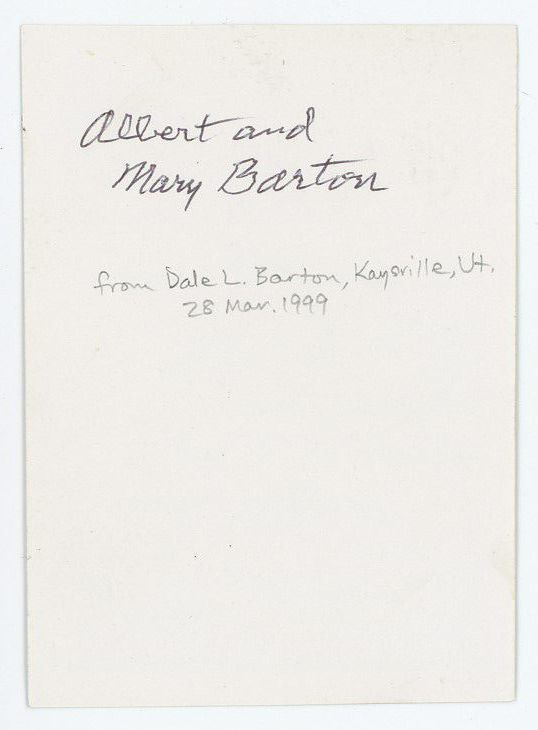 Albert and
Mary Barton
from Dale L. Barton, Kaysville, Ut.
28 Mar. 1999